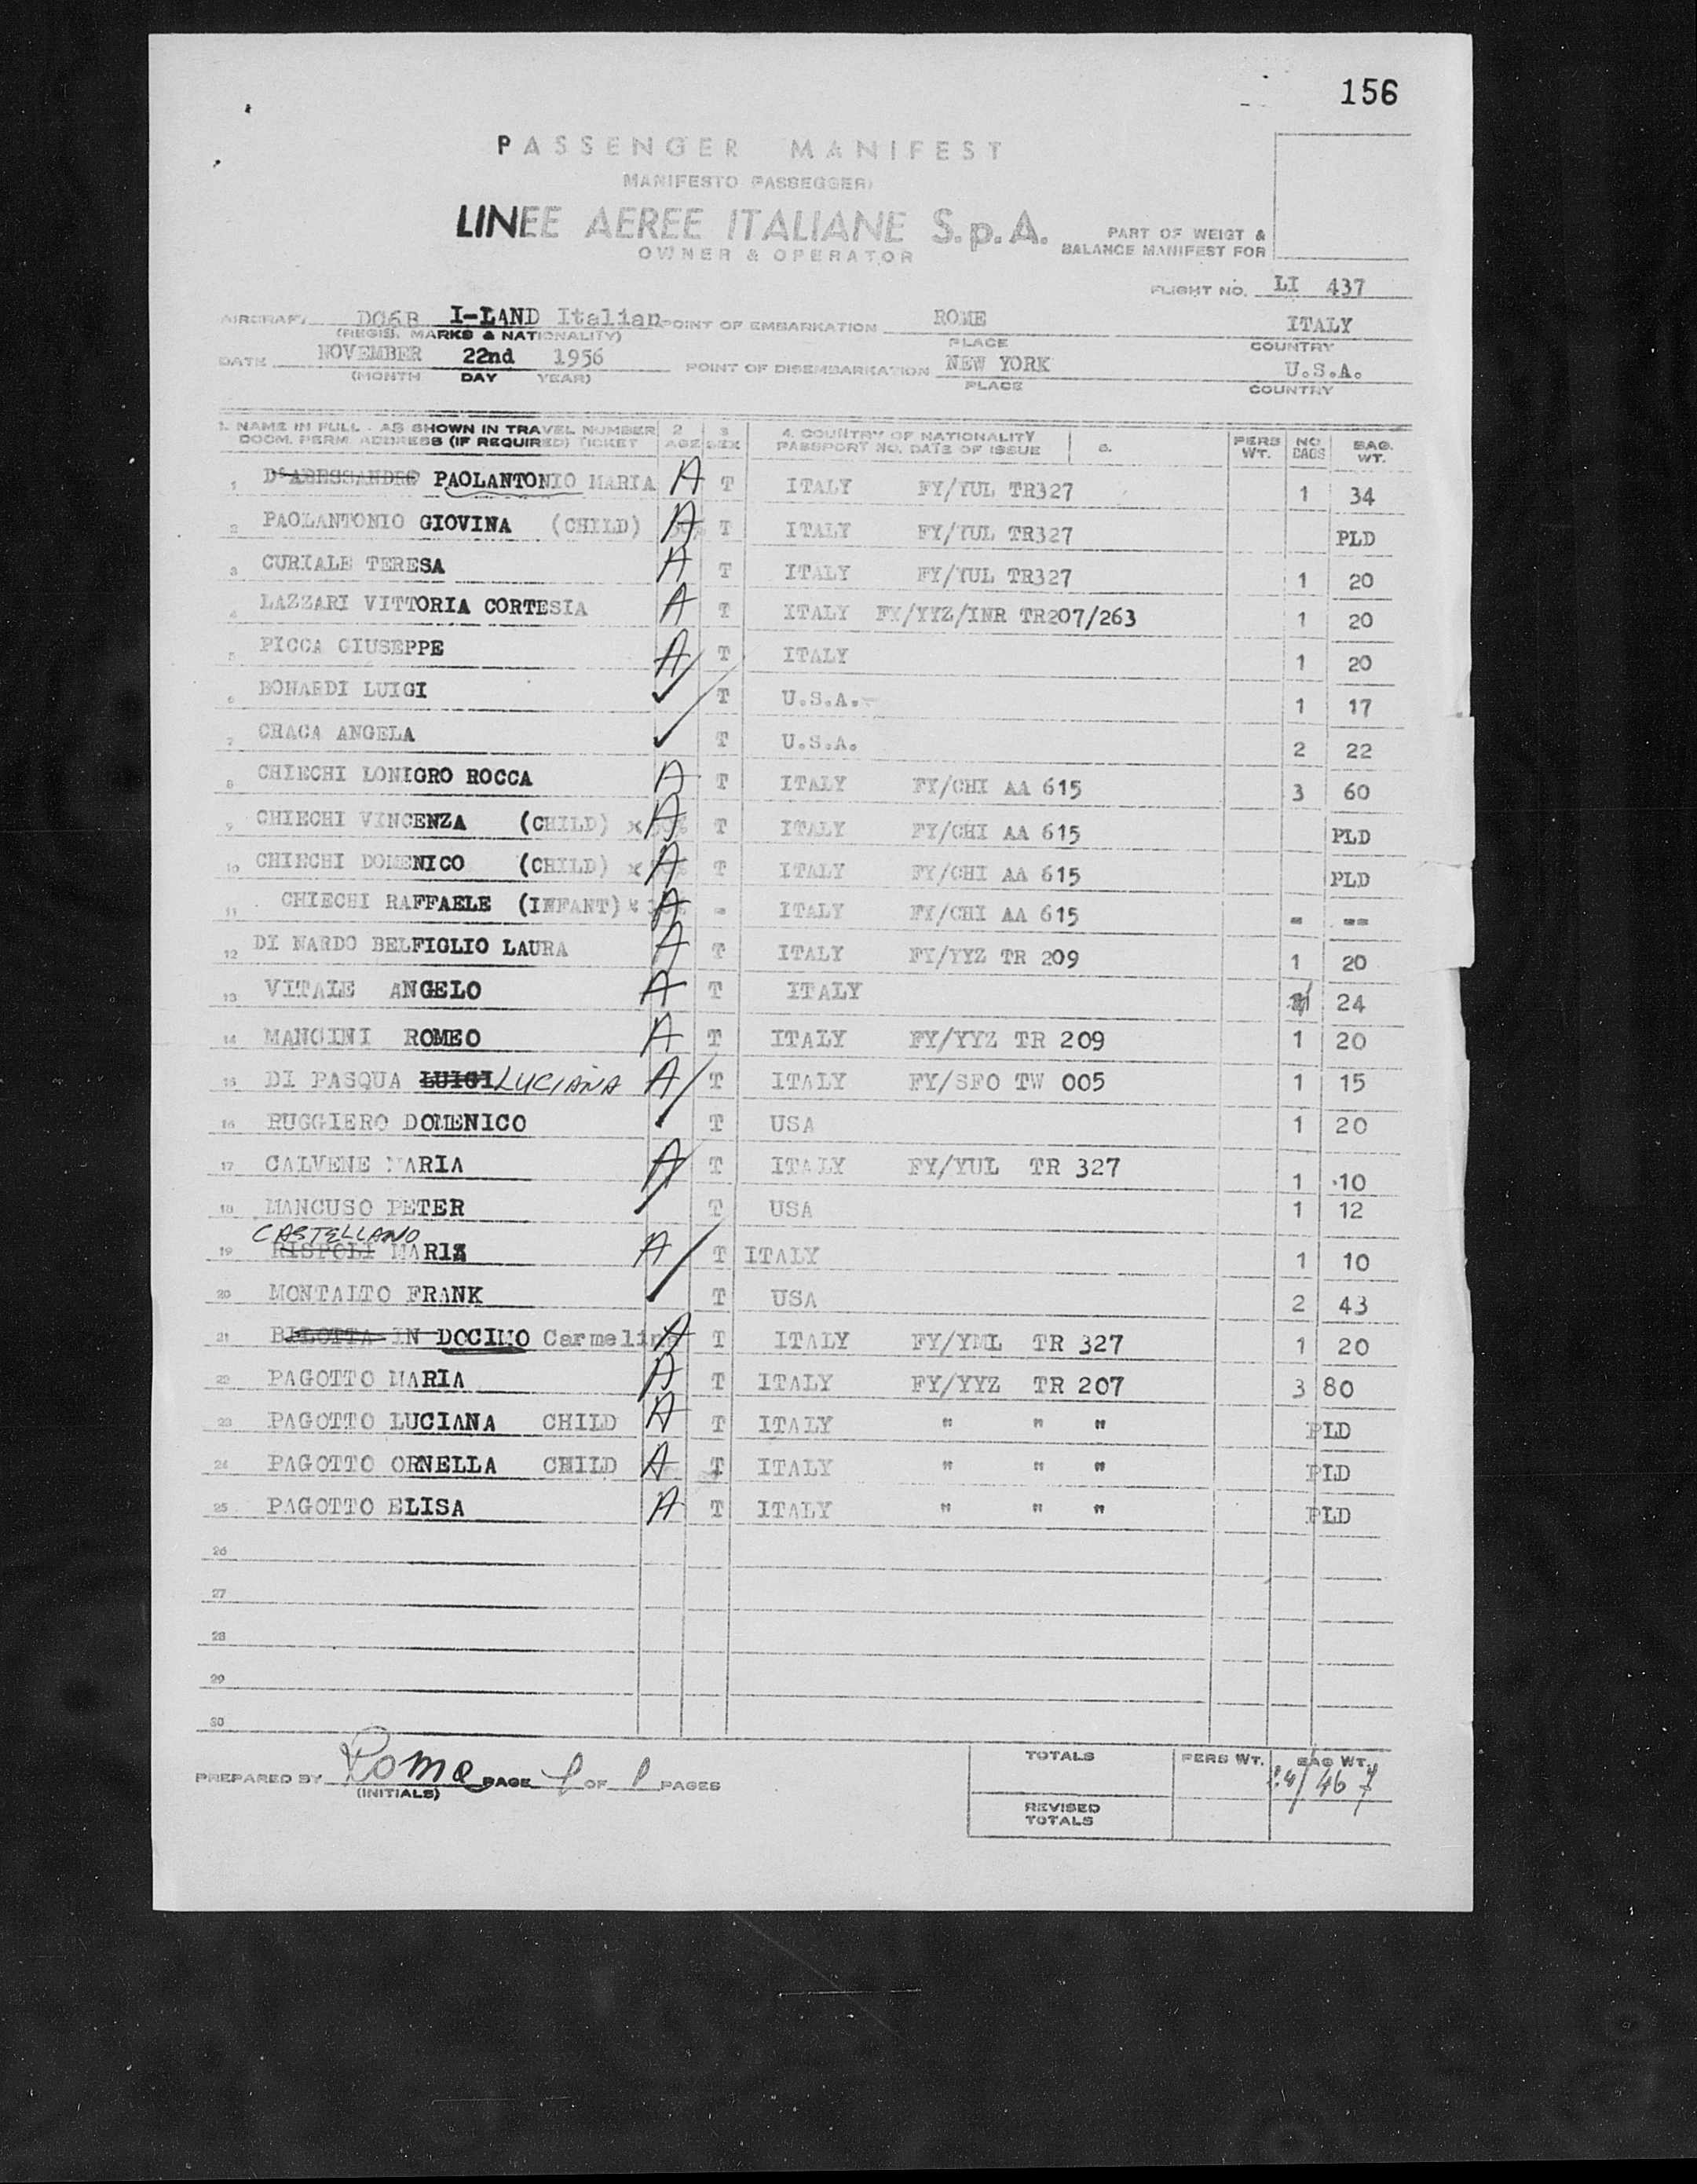 156
PASSENGER MANIFEST
MANIFESTO PASSEGGERI
LINEE AEREE ITALIANE S.p.A.
OWNER & OPERATOR
PART OF WEIGT &
BALANCE MANIFEST FOR
FLIGHT NO. LI 437
AIRCRAFT DC6B I-LAND Italian POINT OF EMBARKATION ROME ITALY
(REGIS. MARKS & NATIONALITY) PLACE COUNTRY
DATE NOVEMBER 22nd 1956 POINT OF DISEMBARKATION NEW YORK U.S.A.
(MONTH DAY YEAR) PLACE COUNTRY
1. NAME IN FULL - AS SHOWN IN TRAVEL NUMBER 2 3 4. COUNTRY OF NATIONALITY PERS NO BAG.
DOCM. PERM. ADDRESS (IF REQUIRED) TICKET AGE SEX PASSPORT NO. DATE OF ISSUE WT. BAGS WT.
1 PAOLANTONIO MARIA A T ITALY FY/YUL TR327 1 34
2 PAOLANTONIO GIOVINA (CHILD) A T ITALY FY/YUL TR327 PLD
3 CURIALE TERESA A T ITALY FY/YUL TR327 1 20
4 LAZZARI VITTORIA CORTESIA A T ITALY FY/YYZ/INR TR207/263 1 20
5 PICCA GIUSEPPE A T ITALY 1 20
6 BONARDI LUIGI ✓ T U.S.A. 1 17
7 CRACA ANGELA ✓ T U.S.A. 2 22
8 CHIECHI LONIGRO ROCCA A T ITALY FY/CHI AA 615 3 60
9 CHIECHI VINCENZA (CHILD) x A T ITALY FY/CHI AA 615 PLD
10 CHIECHI DOMENICO (CHILD) x A T ITALY FY/CHI AA 615 PLD
11 CHIECHI RAFFAELE (INFANT) x A - ITALY FY/CHI AA 615 - --
12 DI NARDO BELFIGLIO LAURA A T ITALY FY/YYZ TR 209 1 20
13 VITALE ANGELO A T ITALY 24
14 MANCINI ROMEO A T ITALY FY/YYZ TR 209 1 20
15 DI PASQUA LUIGI LUCIANA A T ITALY FY/SFO TW 005 1 15
16 RUGGIERO DOMENICO ✓ T USA 1 20
17 CALVENE MARIA A T ITALY FY/YUL TR 327 1 10
18 MANCUSO PETER ✓ T USA 1 12
CASTELLANO
19 RISPOLI MARIA A T ITALY 1 10
20 MONTALTO FRANK ✓ T USA 2 43
21 BILOTTA IN DOCIMO Carmelina A T ITALY FY/YML TR 327 1 20
22 PAGOTTO MARIA A T ITALY FY/YYZ TR 207 3 80
23 PAGOTTO LUCIANA CHILD A T ITALY " " " PLD
24 PAGOTTO ORNELLA CHILD A T ITALY " " " PLD
25 PAGOTTO ELISA A T ITALY " " " PLD
26
27
28
29
30
TOTALS PERS WT. BAG WT.
PREPARED BY Rome PAGE 1 OF 1 PAGES 24/467
(INITIALS)
REVISED
TOTALS